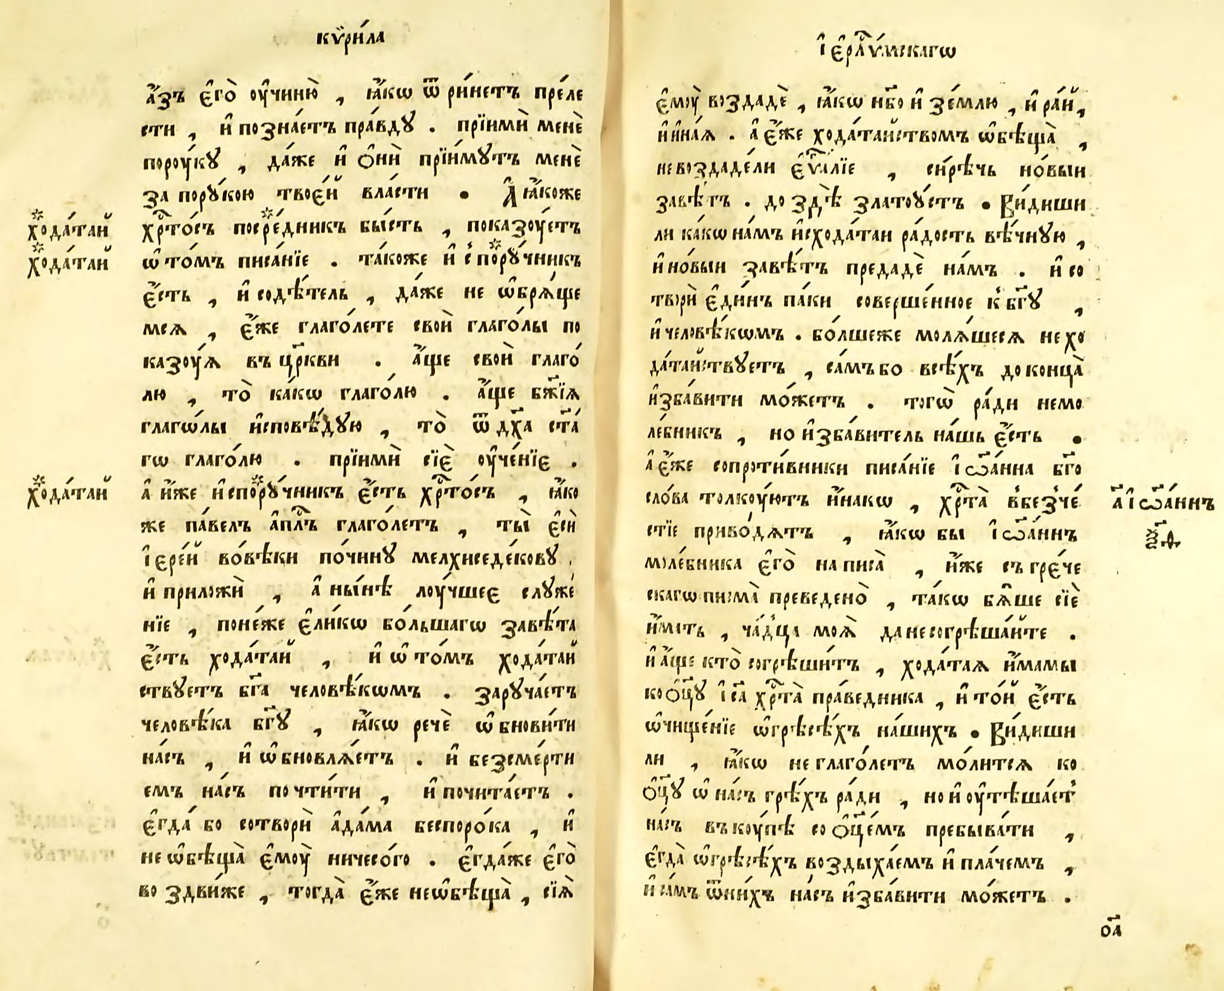 кѷри́ла
а҆́зъ є҆го̀ ᲂу҆чиню̀ , ꙗ҆́кѡ ѿ ри́нетъ преле
сти , и҆ позна́етъ пра́вдꙋ . прїимѝ менѐ
порᲂу́кꙋ , да́же и҆ ѻ҆нѝ прїи́мꙋтъ менѐ
за порꙋ́кою твое́й вла́сти . А҆ ꙗ҆́коже
хрⷭ҇то́съ посре́дникъ бы́сть , показꙋ́етъ
ѡ҆ то́мъ писа́нїе . та́коже и҆ спорꙋ́чникъ
є҆́сть , и҆ содѣ́тель , да́же не ѡ҆брѧ́ще
мсѧ , є҆́же глаго́лете своѝ глаго́лы по
казᲂу́ѧ въ цр҃кви . а҆́ще своѝ глаго́
лю , то̀ ка́кѡ глаго́лю . а҆́ще бж҃їѧ
глаго́лы и҆сповѣ́дꙋю , то̀ ѿ дх҃а ст҃а́
гѡ глаго́лю . прїимѝ сїѐ ᲂу҆че́нїе .
а҆ и҆́же и҆спорꙋ́чникъ є҆́сть хрⷭ҇то́съ , ꙗ҆́ко
же па́велъ а҆пⷭ҇лъ глаго́летъ , ты̀ є҆сѝ
і҆ере́й вовѣ́ки почи́нꙋ мелхиседе́ковꙋ .
и҆ приложѝ , а҆ ны́нѣ лᲂу́чшее слꙋже́
нїе , поне́же є҆ли́кѡ бо́льшагѡ завѣ́та
є҆́сть хода́тай , и҆ ѡ҆ то́мъ хода́тай
ствꙋетъ бг҃а человѣ́кѡмъ . зарꙋча́етъ
человѣ́ка бг҃ꙋ , ꙗ҆́кѡ речѐ ѡ҆бнови́ти
на́съ , и҆ ѡ҆бновлѧ́етъ . и҆ безсме́рти
емъ на́съ почти́ти , и҆ почита́етъ .
є҆гда́ бо сотворѝ а҆да́ма беспоро́ка , и҆
не ѡ҆бѣща̀ є҆мᲂу̀ ничесо́го . є҆гда́же є҆го̀
воздви́же , тогда̀ є҆́же неѡ҆бѣща̀ , сїѧ̀
хода́тай
хода́тай
хода́тай
і҆ерⷭ҇ли́мскагѡ
є҆мᲂу̀ воздадѐ , ꙗ҆́кѡ нб҃о и҆ зе́млю , и҆ ра́й ,
и҆ и҆на́ѧ . а҆ є҆́же хода́тайствомъ ѡ҆бѣща̀ ,
не воздаде́ли є҆ѵⷢ҇лїе , си́рѣчь но́выи
завѣ́тъ . до здѣ̀ златоᲂу́стъ . Ви́диши
ли ка́кѡ на́мъ и҆схода́таи ра́дость вѣ́чнꙋю ,
и҆ но́выи завѣ́тъ предадѐ на́мъ . и҆ со
творѝ є҆ди́нъ па́ки соверше́нное к҆ бг҃ꙋ ,
и҆ человѣ́кѡмъ . бо́лшеже молѧ́шесѧ не хо
да́тайствꙋетъ , са́мъ бо всѣ́хъ до конца̀
и҆зба́вити мо́жетъ . тогѡ̀ ра́ди не мо
ле́бникъ , но и҆зба́витель на́шь є҆́сть .
а҆ є҆́же сопроти́вники писа́нїе і҆ѡа́нна бг҃о
сло́ва толкᲂу́ютъ и҆на́кѡ , хрⷭ҇та̀ в҆безче́
стїе приво́дѧтъ , ꙗ҆́кѡ бы і҆ѡа́ннъ
моле́бника є҆го̀ написа̀ , и҆́же съ гре́че
скагѡ писма̀ преведено̀ , та́кѡ бѧ́ше сїѐ
и҆́мать , ча́дца моѧ̀ да не согрѣша́йте .
и҆ а҆́ще кто̀ согрѣши́тъ , хода́таѧ и҆́мамы
ко ѻ҆ц҃ꙋ і҆са хрⷭ҇та̀ пра́ведника , и҆ то́й є҆́сть
ѡ҆чище́нїе ѡ҆ грѣсѣ́хъ на́шихъ . Ви́диши
ли , ꙗ҆́кѡ не глаго́летъ мо́литсѧ ко
ѻ҆ц҃ꙋ ѡ҆ на́съ грѣ́хъ ра́ди , но и҆ ᲂу҆тѣша́етъ
на́съ въкᲂу́пѣ со ѻ҆ц҃е́мъ пребыва́ти ,
є҆гда̀ ѡ҆ грѣсѣ́хъ воздыха́емъ и҆ пла́чемъ ,
и҆ са́мъ ѿ ни́хъ на́съ и҆зба́вити мо́жетъ .
а҆ і҆ѡа́ннъ
о҃а